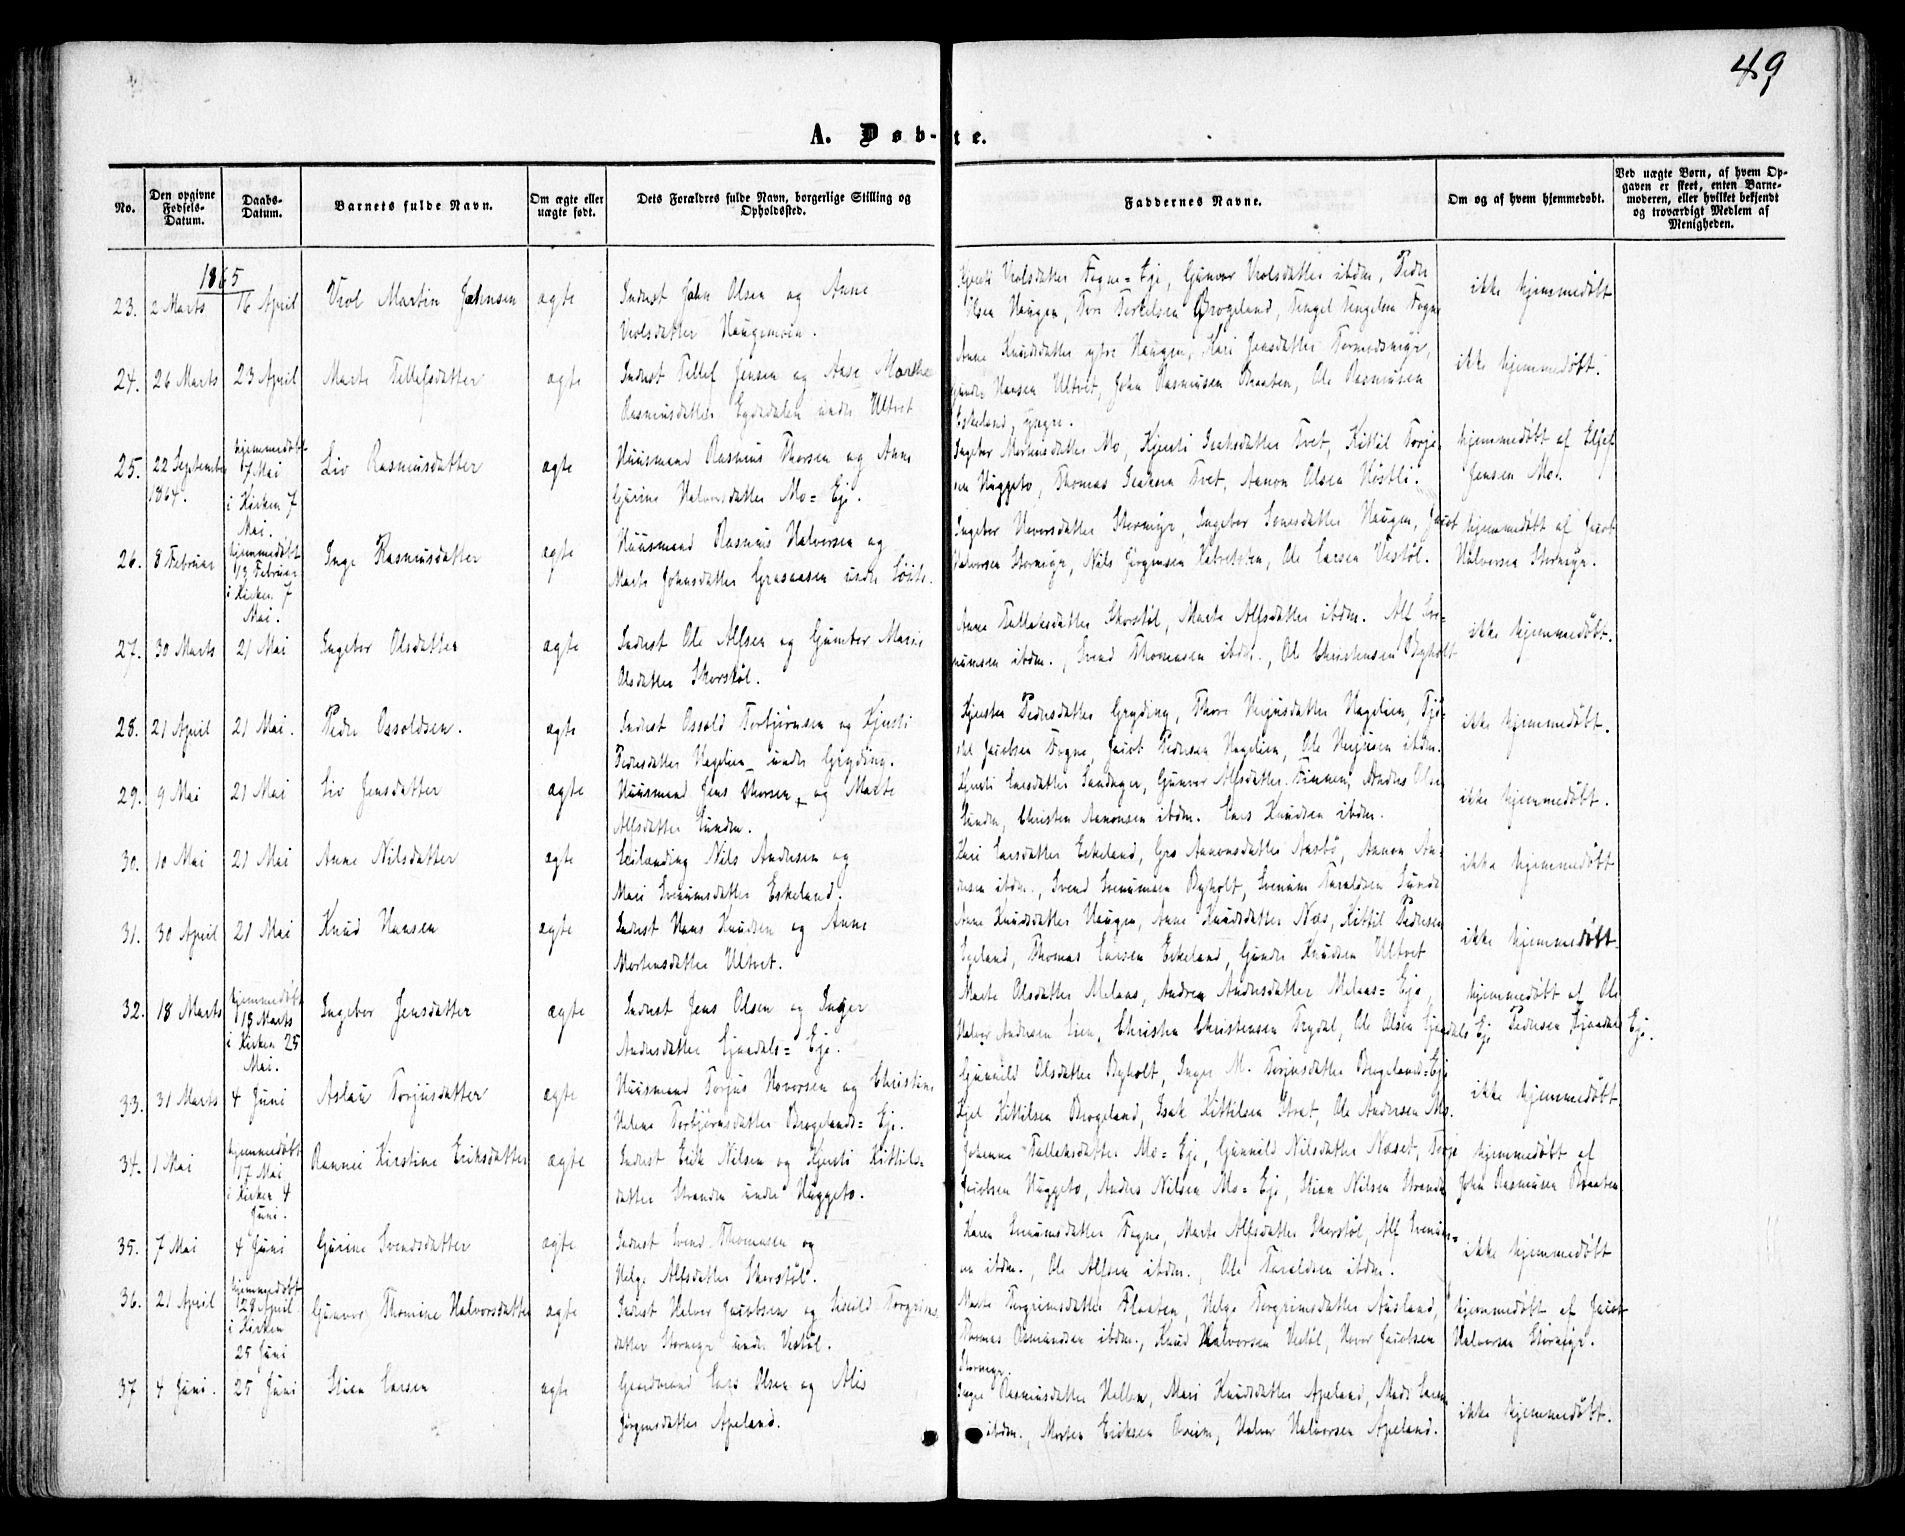 49
A. Døb-te.
No.
Den opgivne Fødsels-Datum.
Daabs-Datum.
Barnets fulde Navn.
Om ægte eller uægte født.
Dets Forældres fulde Navn, borgerlige Stilling og Opholdssted.
Faddernes Navne.
Om og af hvem hjemmedøbt.
Ved uægte Børn, af hvem Opgaven er skeet, enten Barnemoderen, eller hvilket bekjendt og troværdigt Medlem af Menigheden.
1865
23. 2 Marts 16 April Vrol Martin Johnsen ægte Inderst John Olsen og Anne
Vrolsdatter Haugemoen.
Kjersti Vrolsdatter Fogne=Eje, Gunvor Vrolsdatter ibdm, Peder
Olsen Haugen, Tore Terkelsen Brogeland, Tengel Tengelsen Fogne
ikke hjemmedøbt
24. 26 Marts 23 April Marte Tellefsdatter ægte Inderst Tellef Jensen og Aase Marthe
Rasmusdatter Eydedalen under Ultvet
Anne Knudsdatter ytre Haugen, Kari Jensdatter Tormodsmyr,
Gunder Hansen Ultvet, John Rasmusen Braaten, Ole Rasmusen
Eskeland, yngre.
ikke hjemmedøbt.
25. 22 September 1864. hjemmedøbt 7 Mai i Kirken 7 Mai. Liv Rasmusdatter ægte Huusmand Rasmus Thorsen og Anne
Gurine Halvorsdatter Mo=Eje.
Ingebor Mortensdatter Mo, Kjersti Isaksdatter Tvet, Kittil Torje
sen Huggeto, Thomas Isaksen Tvet, Aanon Olsen Høstli.
hjemmedøbt af Eljef
Jensen Mo.
26. 8 Februar hjemmedøbt 13 Februar i Kirken 7 Mai. Inge Rasmusdatter ægte Huusmand Rasmus Halvorsen og
Marte Johnsdatter Grasaasen under
Ingebor Hovorsdatter Stormyr, Ingebor Haugen, Jacob
Halvorsen Stormyr, Nils Jørgensen Ole Larsen Vestøl.
hjemmedøbt af Jacob
Halvorsen Stormyr.
27. 30 Marts 21 Mai Ingebor Olsdatter ægte Inderst Ole Alfsen og Gumber Marie
Olsdatter Skorstøl.
Anne Tallaksdatter Skorstøl, Marte Alfsdatter ibdm. Alf Sve-
numsen ibdm., Svend Thomesen ibdm., Ole Christensen Byholt
ikke hjemmedøbt.
28. 21 April 21 Mai. Peder Ossoldsen. ægte Inderst Ossold Torbjørnsen og Kjersti
Pedersdatter Hagelien under Gryding.
Kjersten Pedersdatter Gryding, Thore Verjusdatter Hagelien, Tjø-
stel Jacobsen Fogne, Jacob Pedersen Hagelien, Ole Verjusen ibdm.
ikke hjemmedøbt.
29. 9 Mai 21 Mai Liv Jensdatter ægte Huusmand Jens Thorsen, og Marte
Alfsdatter Sunden.
Kjersti Larsdatter Sandager, Gunvor Alfsdatter Finnen, Anders Olsen
Sunden, Christen Aanonsen ibdm. Lars Knudsen ibdm.
ikke hjemmedøbt.
30. 10 Mai 21 Mai Anne Nilsdatter ægte Leilænding Nils Andersen og
Mari Svenumsdatter Eskeland.
Kari Larsdatter Eskeland, Gro Aanonsdatter Aasbø, Aanon An-
dersen ibdm., Svend Svenumsen Byholt, Svenum Taraldsen Sunde
ikke hjemmedøbt
31. 30 April 21 Mai Knud Hansen ægte Inderst Hans Knudsen og Anne
Mortensdatter Ultvet.
Anne Knudsdatter Haugen, Anne Knudsdatter Næs, Kittil Pedersen
Egeland, Thomas Larsen Eskeland, Gunder Knudsen Ultvet
ikke hjemmedøbt.
32. 18 Marts hjemmedøbt 18 Marts i Kirken 25 Mai. Ingebor Jensdatter ægte Inderst Jens Olsen og Inger
Andersdatter Ejendals=Eje.
Marte Olsdatter Melaas, Andrea Andersdatter Melaas=Eje,
Halvor Andersen Lien, Christen Christensen Trydal, Ole Olsen Ejendals Eje
hjemmedøbt af Ole
Pedersen Ejendals Eje.
33. 31 Marts 4 Juni Aslau Torjusdatter ægte Huusmand Torjus Hovorsen og Christine
Helene Torbjørnsdatter Brogelands=Eje.
Gunnild Olsdatter Byholt, Inger M. Torjusdatter Brogeland=Eje
Kjel Kittilsen Brogeland, Isak Kittilsen Tvet, Ole Andersen Mo.
ikke hjemmedøbt.
34. 1 Mai hjemmedøbt 17 Mai i Kirken 4 Juni. Rannei Kirstine Eriksdatter ægte Inderst Erik Nilsen og Kjersti Kittils=
datter Stranden under Huggeto.
Johanne Tallaksdatter Mo=Eje, Gunnild Nilsdatter Næset, Torje
Jacobsen Huggeto, Anders Nilsen Mo=Eje, Stian Nilsen Stranden
hjemmedøbt af
John Rasmusen Braaten
35. 7 Mai 4 Juni Gurine Svendsdatter ægte Inderst Svend Thomasen og
Helge Alfsdatter Skorstøl.
Karen Svenumsdatter Fogne, Marte Alfsdatter Skorstøl, Alf Svenum=
sen ibdm., Ole Alfsen ibdm., Ole Taraldsen ibdm.
ikke hjemmedøbt
36. 21 April hjemmedøbt 29 April i Kirken 25 Juni Gunvor Thomine Halvorsdatter ægte Inderst Halvor Jacobsen og Siseild Torgrims
datter Stormyr under Vestøl.
Marte Torgrimsdatter Flaaten, Helge Torgrimsdatter Ausland,
Thomas Osmundsen ibdm., Knud Halvorsen Vestøl, Hovor Jacobsen
Stormyr.
hjemmedøbt af Jacob
Halvorsen Stormyr.
37 4 Juni. 25 Juni Stian Larsen ægte Gaardmand Lars Olsen og Alis
Jørgensdatter Apeland.
Inger Rasmusdatter Hellen, Mari Knudsdatter Apeland, Mads Larsen
ibdm., Morten Eriksen Oveim, Halvor Halvorsen Apeland.
ikke hjemmedøbt.